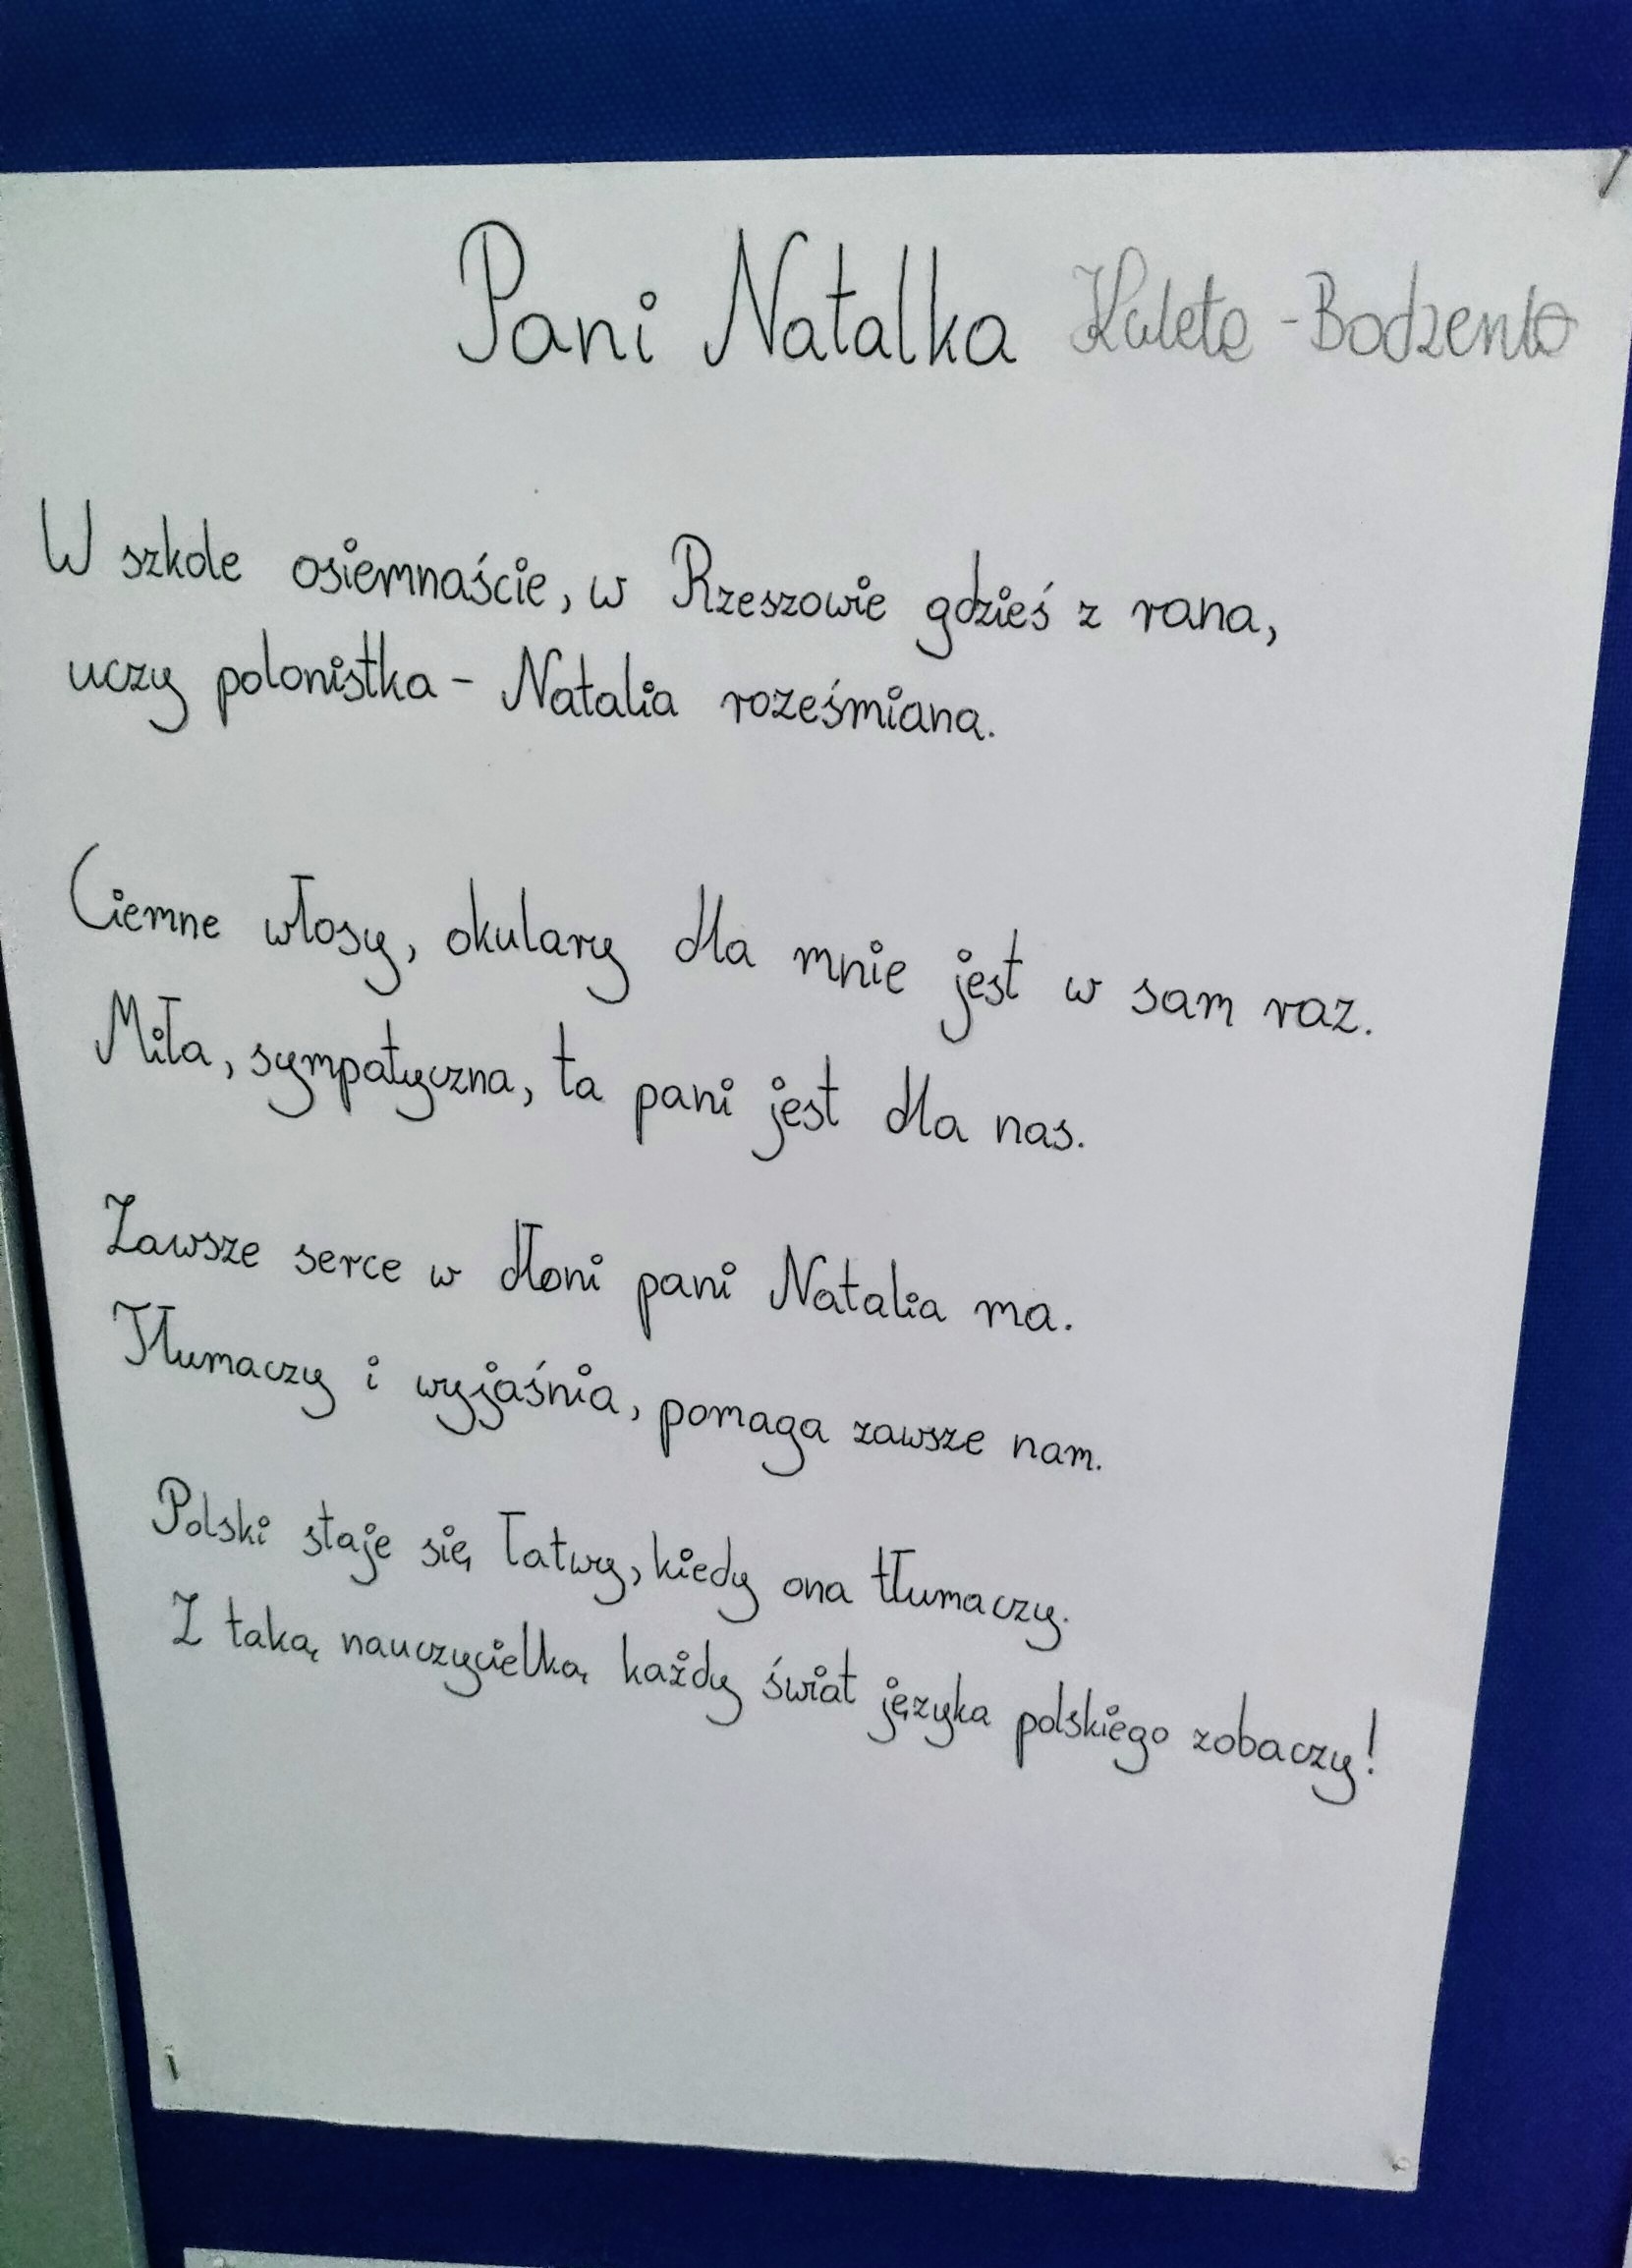 Pani Natalka Kuleta-Bodzenta
W szkole osiemnaście, w Rzeszowie gdzieś z rana,
uczy polonistka - Natalia roześmiana.
Ciemne włosy, okulary dla mnie jest w sam raz.
Miła, sympatyczna, ta pani jest dla nas.
Zawsze serce w dłoni pani Natalia ma.
Tłumaczy i wyjaśnia, pomaga zawsze nam.
Polski staje się łatwy, kiedy ona tłumaczy.
Z taką nauczycielką każdy świat języka polskiego zobaczy!